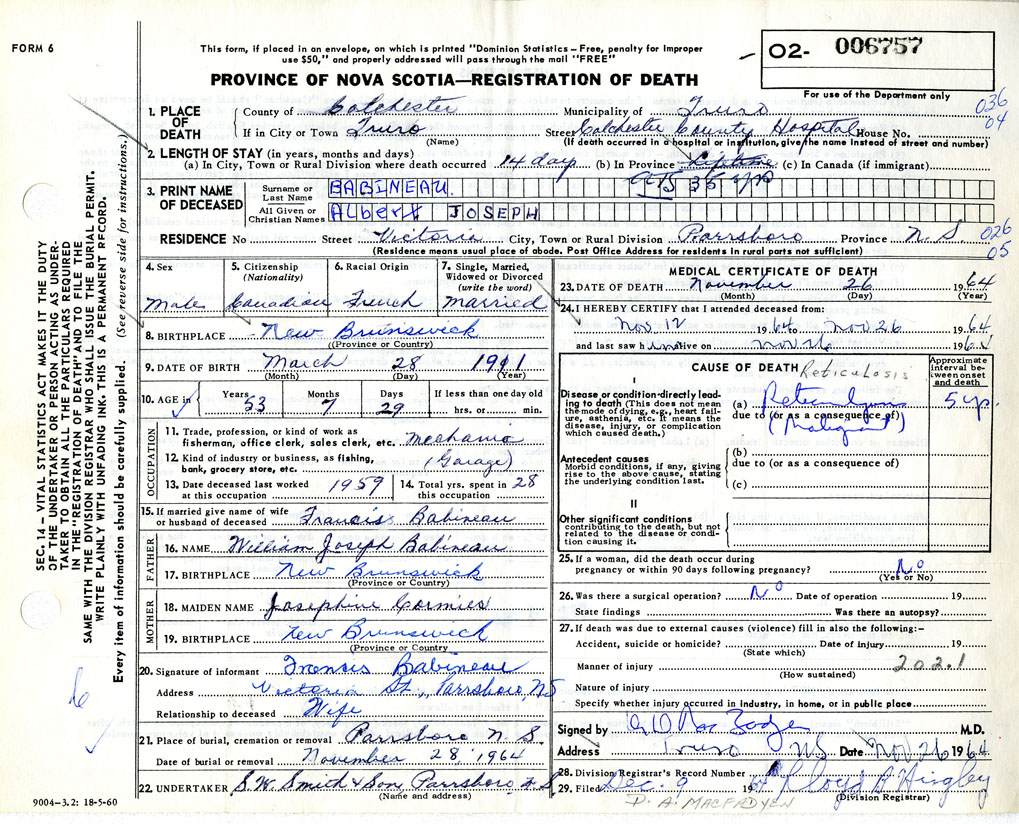 FORM 6
This form, if placed in an envelope, on which is printed "Dominion Statistics – Free, penalty for improper
use $50," and properly addressed will pass through the mail "FREE"
PROVINCE OF NOVA SCOTIA—REGISTRATION OF DEATH
02- 006757
For use of the Department only
036
04
1. PLACE OF DEATH
County of Colchester Municipality of Truro
If in City or Town Truro Street Colchester County Hospital House No.
(Name) (If death occurred in a hospital or institution, give the name instead of street and number)
2. LENGTH OF STAY (in years, months and days)
(a) In City, Town or Rural Division where death occurred 14 day (b) In Province (c) In Canada (if immigrant)
35 yrs
3. PRINT NAME OF DECEASED
Surname or Last Name BABINEAU.
All Given or Christian Names Albert JOSEPH
RESIDENCE No Street Victoria City, Town or Rural Division Parrsboro Province N. S.
026
05
(Residence means usual place of abode. Post Office Address for residents in rural parts not sufficient)
4. Sex Male
5. Citizenship (Nationality) Canadian
6. Racial Origin French
7. Single, Married, Widowed or Divorced (write the word) Married
8. BIRTHPLACE New Brunswick
(Province or Country)
9. DATE OF BIRTH March 28 1911
(Month) (Day) (Year)
10. AGE in Years 53 Months 7 Days 29 If less than one day old hrs. or min.
OCCUPATION
11. Trade, profession, or kind of work as fisherman, office clerk, sales clerk, etc. Mechanic
12. Kind of industry or business, as fishing, bank, grocery store, etc. (Garage)
13. Date deceased last worked at this occupation 1959
14. Total yrs. spent in this occupation 28
15. If married give name of wife or husband of deceased Francis Babineau
FATHER
16. NAME William Joseph Babineau
17. BIRTHPLACE New Brunswick
(Province or Country)
MOTHER
18. MAIDEN NAME Josephine Cormier
19. BIRTHPLACE New Brunswick
(Province or Country
20. Signature of informant Francis Babineau
Address Victoria St., Parrsboro, NS
Relationship to deceased Wife
21. Place of burial, cremation or removal Parrsboro N. S.
Date of burial or removal November 28, 1964
22. UNDERTAKER S.W. Smith & Son, Parrsboro N.S.
(Name and address)
9004–3.2: 18-5-60
MEDICAL CERTIFICATE OF DEATH
23. DATE OF DEATH November 26 1964
(Month) (Day) (Year)
24. I HEREBY CERTIFY that I attended deceased from:
Nov 12 1964 to Nov 26 1964
and last saw him alive on Nov 26 1964
CAUSE OF DEATH Reticulosis
Approximate interval between onset and death
I
Disease or condition directly leading to death (This does not mean the mode of dying, e.g., heart failure, asthenia, etc. It means the disease, injury, or complication which caused death.)
(a) 5 yr.
due to (or as a consequence of)
(Malignant)
Antecedent causes
Morbid conditions, if any, giving rise to the above cause, stating the underlying condition last.
(b)
due to (or as a consequence of)
(c)
II
Other significant conditions
contributing to the death, but not related to the disease or condition causing it.
25. If a woman, did the death occur during
pregnancy or within 90 days following pregnancy? No
(Yes or No)
26. Was there a surgical operation? No Date of operation 19
State findings Was there an autopsy?
27. If death was due to external causes (violence) fill in also the following:–
Accident, suicide or homicide? Date of injury 19
(State which)
Manner of injury 202.1
(How sustained)
Nature of injury
Specify whether injury occurred in industry, in home, or in public place
Signed by M.D.
Address Truro NS Date Nov 26 1964
28. Division Registrar's Record Number
29. Filed Dec. 9 1964 Lloyd B Hingley
(Division Registrar)
D. A. MACFADYEN
SEC. 14 – VITAL STATISTICS ACT MAKES IT THE DUTY
OF THE UNDERTAKER OR PERSON ACTING AS UNDER-
TAKER TO OBTAIN ALL THE PARTICULARS REQUIRED
IN THE "REGISTRATION OF DEATH" AND TO FILE THE
SAME WITH THE DIVISION REGISTRAR WHO SHALL ISSUE THE BURIAL PERMIT.
WRITE PLAINLY WITH UNFADING INK. THIS IS A PERMANENT RECORD.
Every item of information should be carefully supplied. (See reverse side for instructions.)